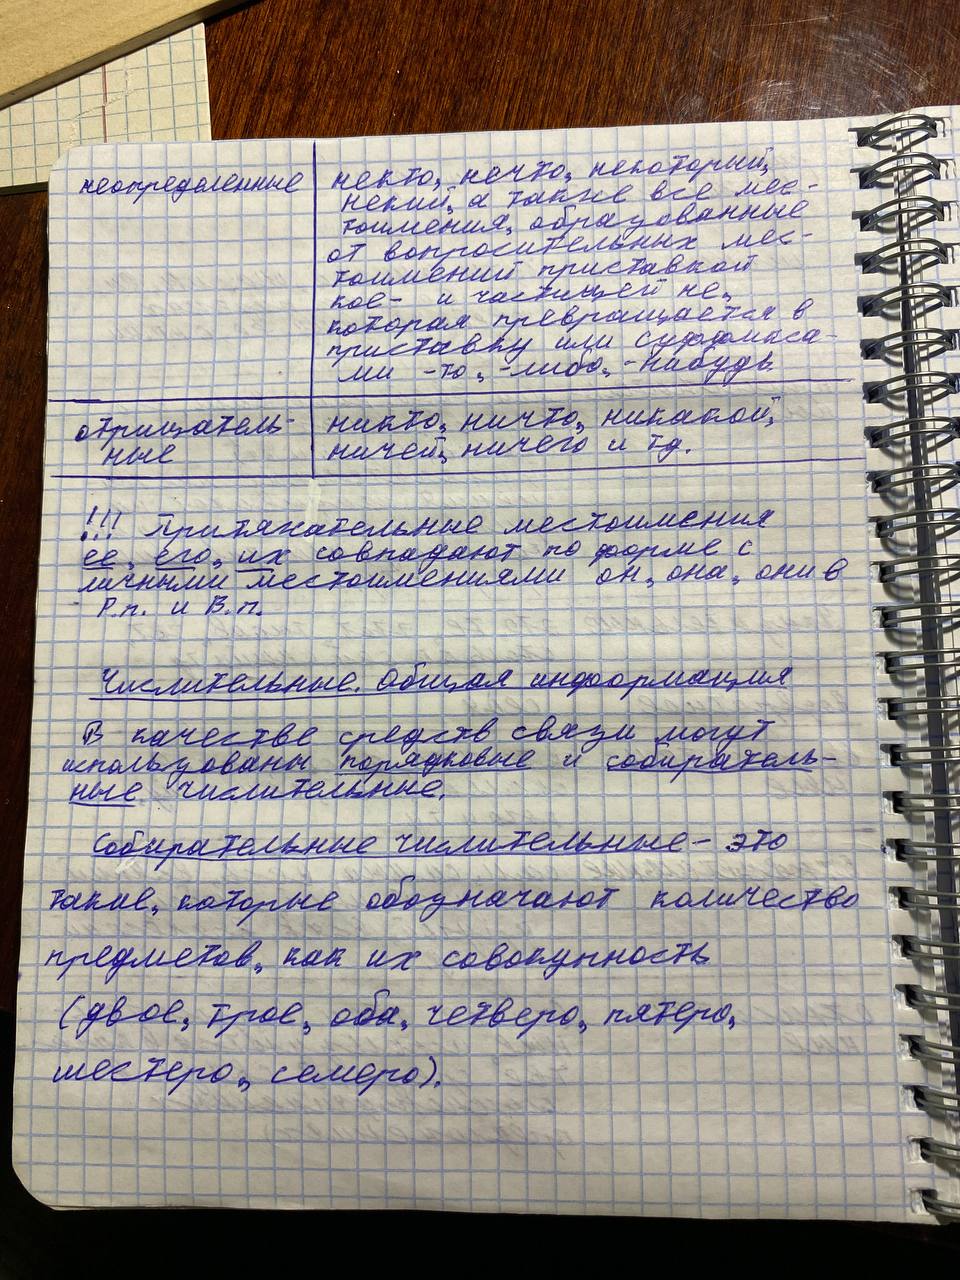 неопределенные
некто, нечто, некоторый,
некий, а также все мес-
тоимения, образованные
от вопросительных мес-
тоимений приставкой
кое- и частицей не,
которая превращается в
приставку или суффикса-
ми -то, -либо, -нибудь.
отрицатель-
ные
никто, ничто, никакой,
ничей, ничего и тд.
!!! Притяжательные местоимения
ее, его, их совпадают по форме с
личными местоимениями он, она, они в
Р.п. и В.п.
Числительные. Общая информация
В качестве средств связи могут
использованы порядковые и собиратель-
ные числительные.
Собирательные числительные - это
такие, которые обозначают количество
предметов, как их совокупность
(двое, трое, оба, четверо, пятеро,
шестеро, семеро).